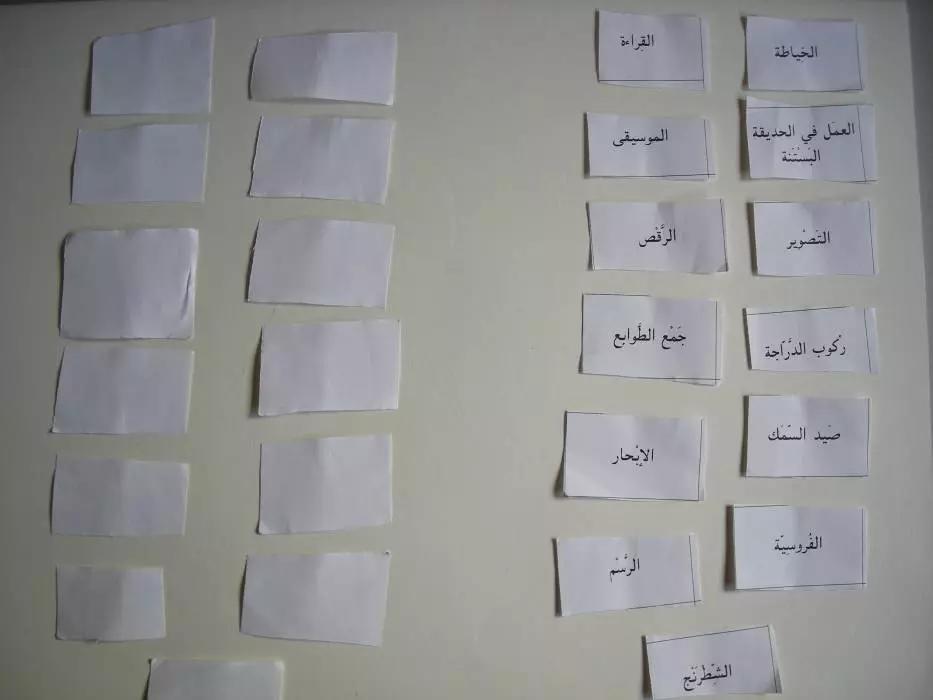 الخِياطة
القِراءة
العمَل في الحديقة
البَسْتَنة
الموسيقى
التَصْوير
الرَّقْص
رُكوب الدَّرّاجة
جَمْع الطَّوابع
صَيد السّمَك
الإبْحار
الفُروسِيّة
الرَّسْم
الشِّطْرَنْج